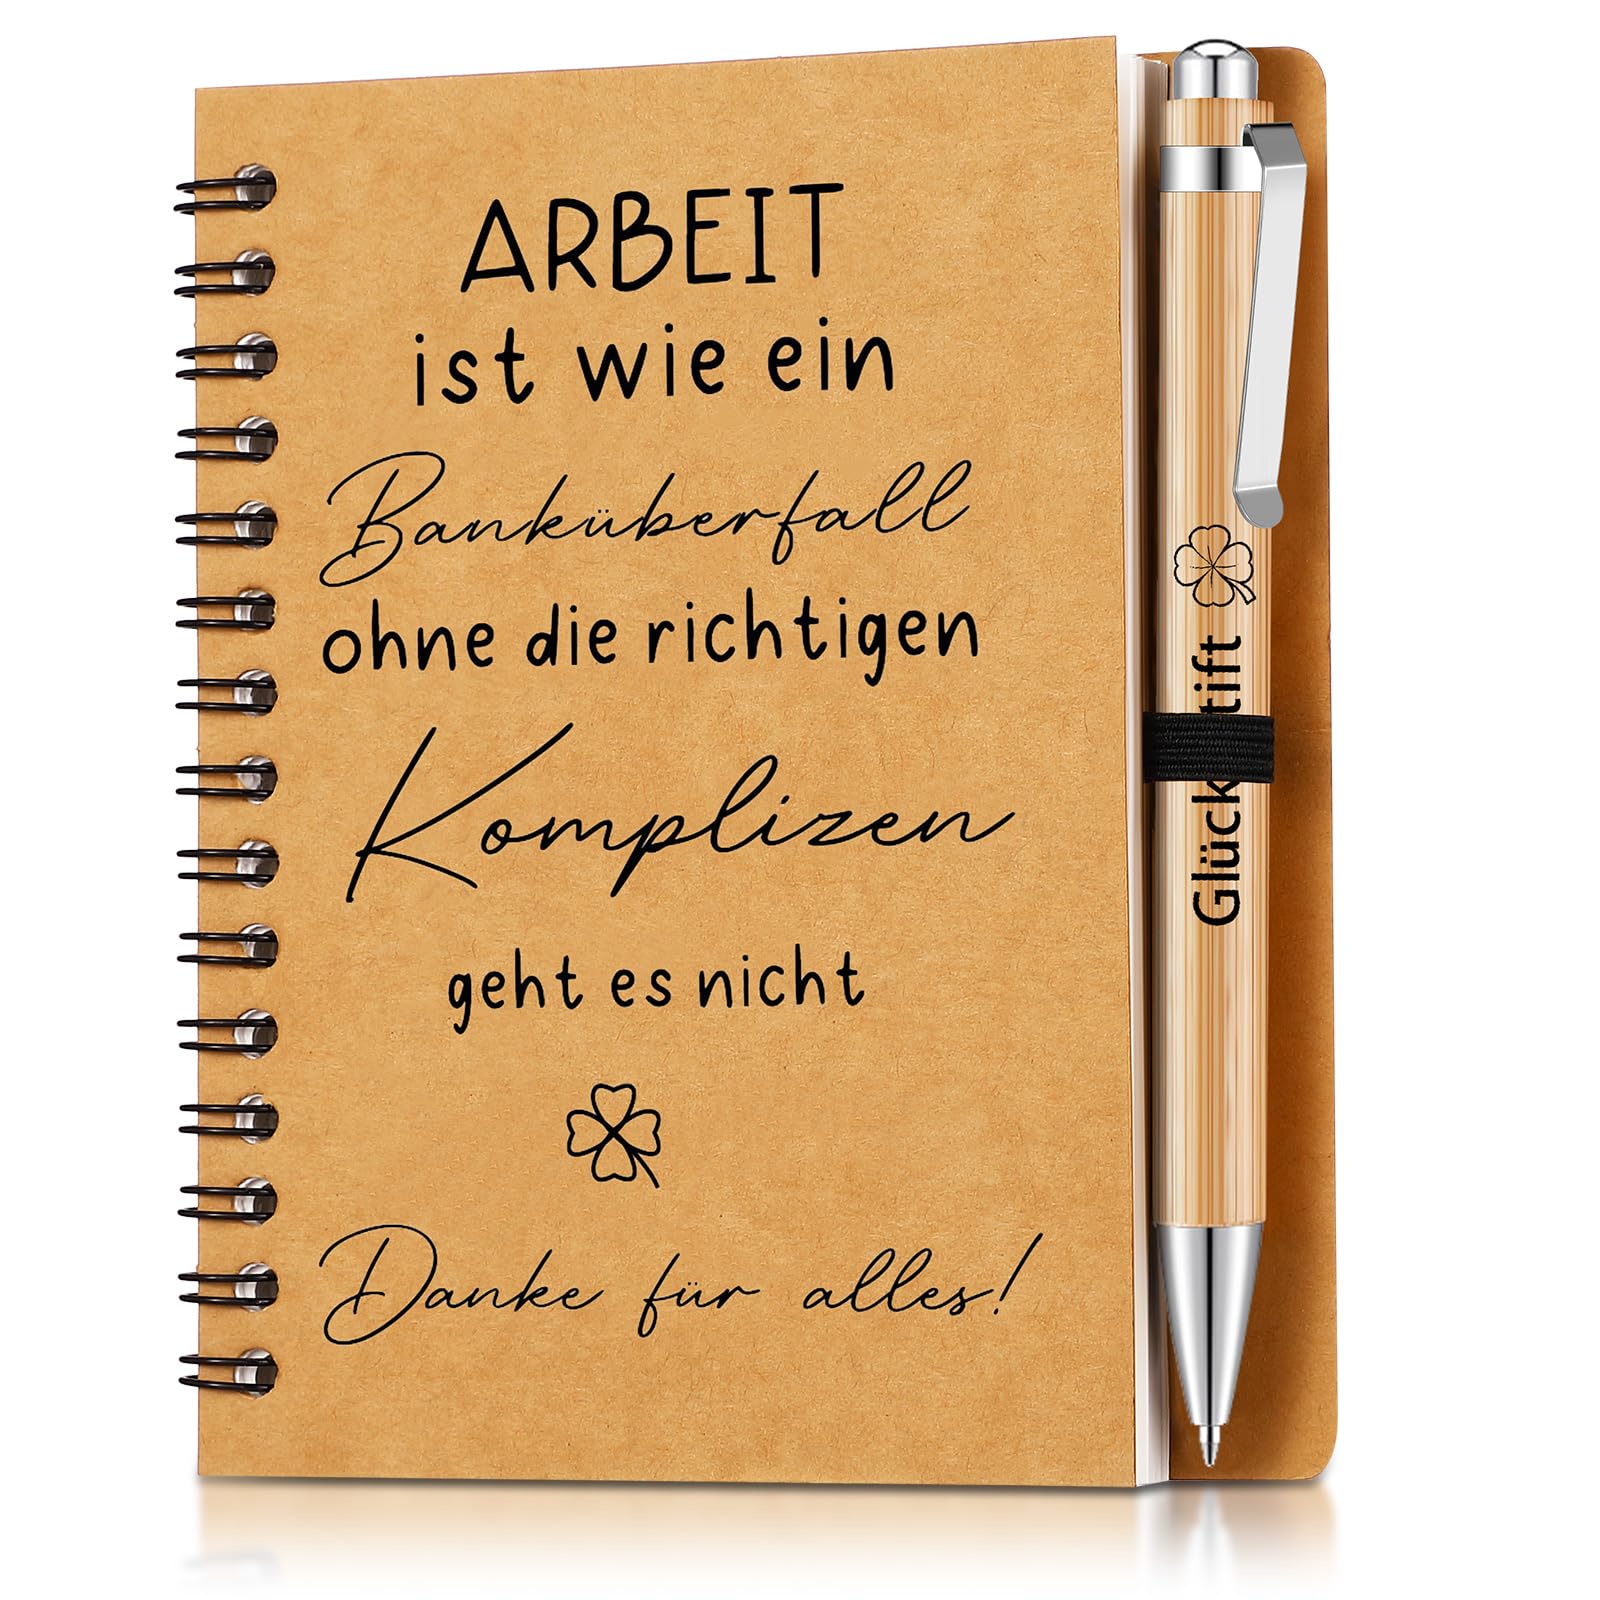 ARBEIT
ist wie ein
Banküberfall
ohne die richtigen
Komplizen
geht es nicht
Danke für alles!
Glück tift